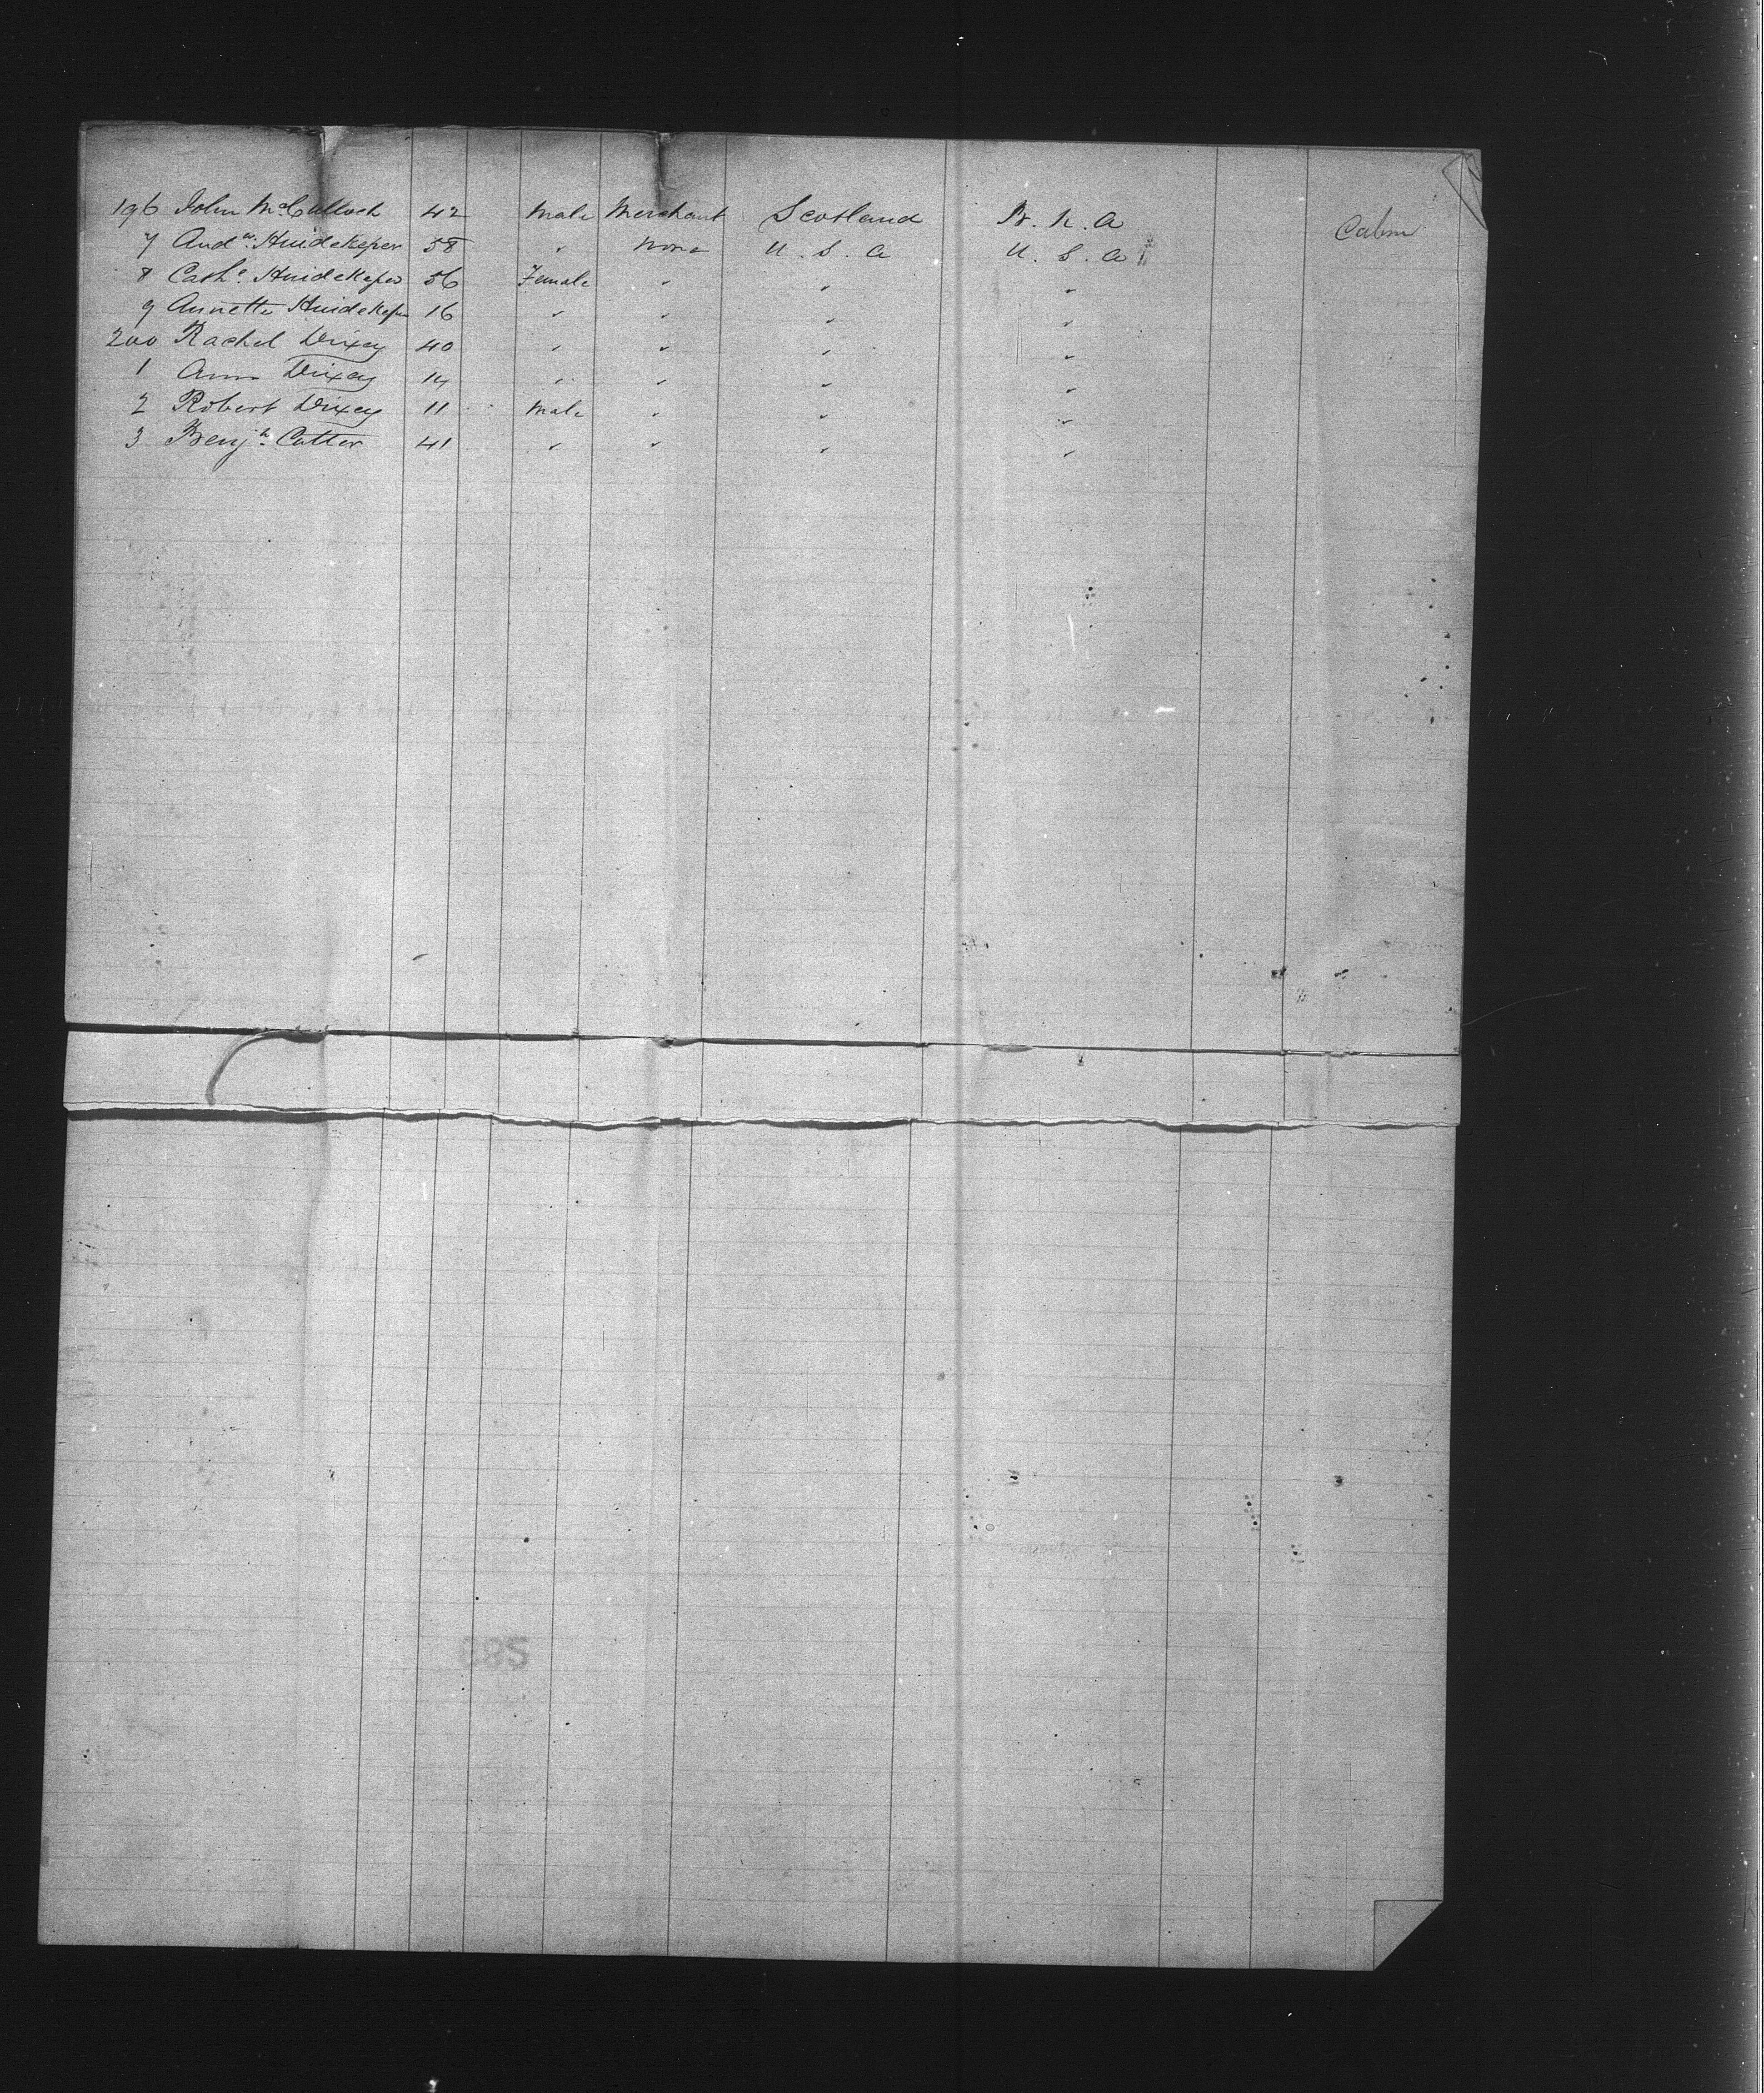 196 John McCulloch 42 Male Merchant Scotland B. N. A Cabin
7 Andw. Huidekeper 58 " None U. S. A U. S. A
8 Cathe. Huidekeper 56 Female " " "
9 Annette Huidekeper 16 " " " "
200 Rachel Dixey 40 " " " "
1 Ann Dixey 14 " " " "
2 Robert Dixey 11 Male " " "
3 Benjn. Cutter 41 " " " "